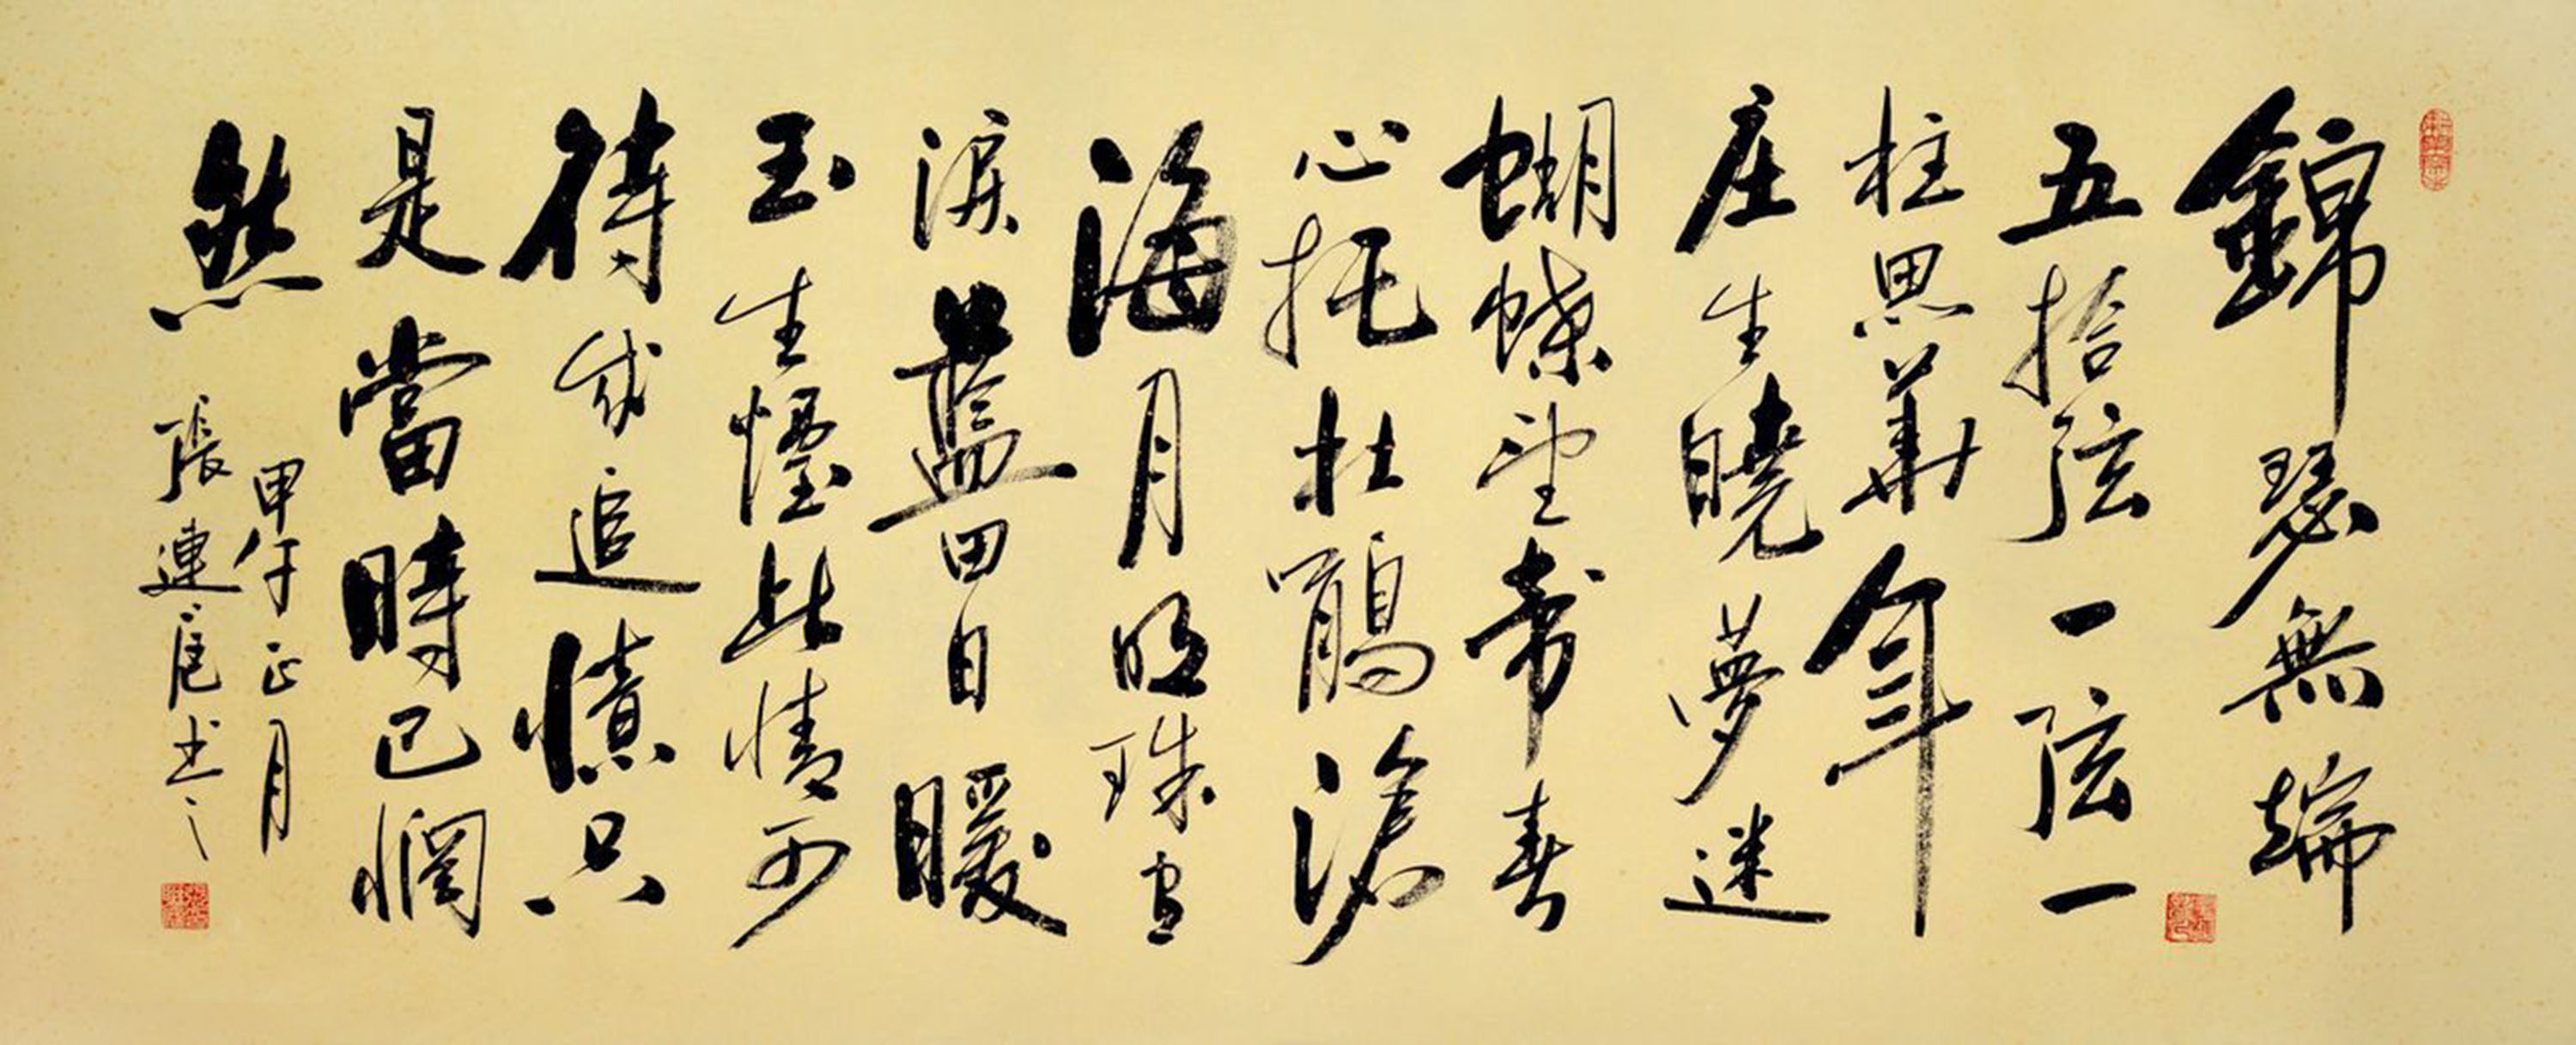 錦瑟無端
五拾弦一弦一
柱思華年
庄生曉夢迷
蝴蝶望帝春
心托杜鵑滄
海月明珠有
淚藍田日暖
玉生煙此情可
待成追憶只
是當時已惘
然
甲午正月
張連官书之